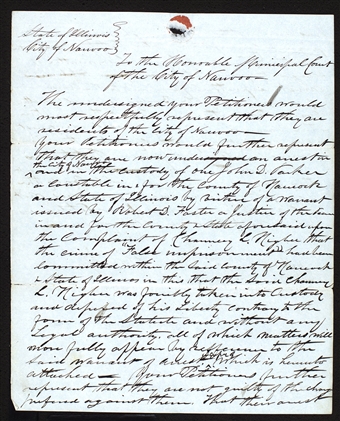 State of Illinois
City of Nauvoo
To the Honorable Municipal Court
of the City of Nauvoo
The undersigned your Petitioners would
most respectfully represent that they are
residents of the City of Nauvoo
Your Petitioners would further represent
that they are now under an arrest in
the City of Nauvoo
and in the custody of one John D. Parker
a constable in & for the County of Hancock
and State of Illinois by virtue of a warrant
issued by Robert D. Foster a Justice of the Peace
in and for the County & State aforesaid upon
the complaint of Chauncy L. Higbee that
the crime of False imprisonment had been
committed within the said County of Hancock
& State of Illinois in this that the said Chauncy
L. Higbee was forcibly taken into Custody
and deprived of his Liberty contrary to the
form of the Statute and without any
legal authority, all of which matters will
more fully appear by reference to the
said warrant which is hereunto
attached — Your Petitioners further
represent that they are not guilty of the charge
prefered against them. That their arrest